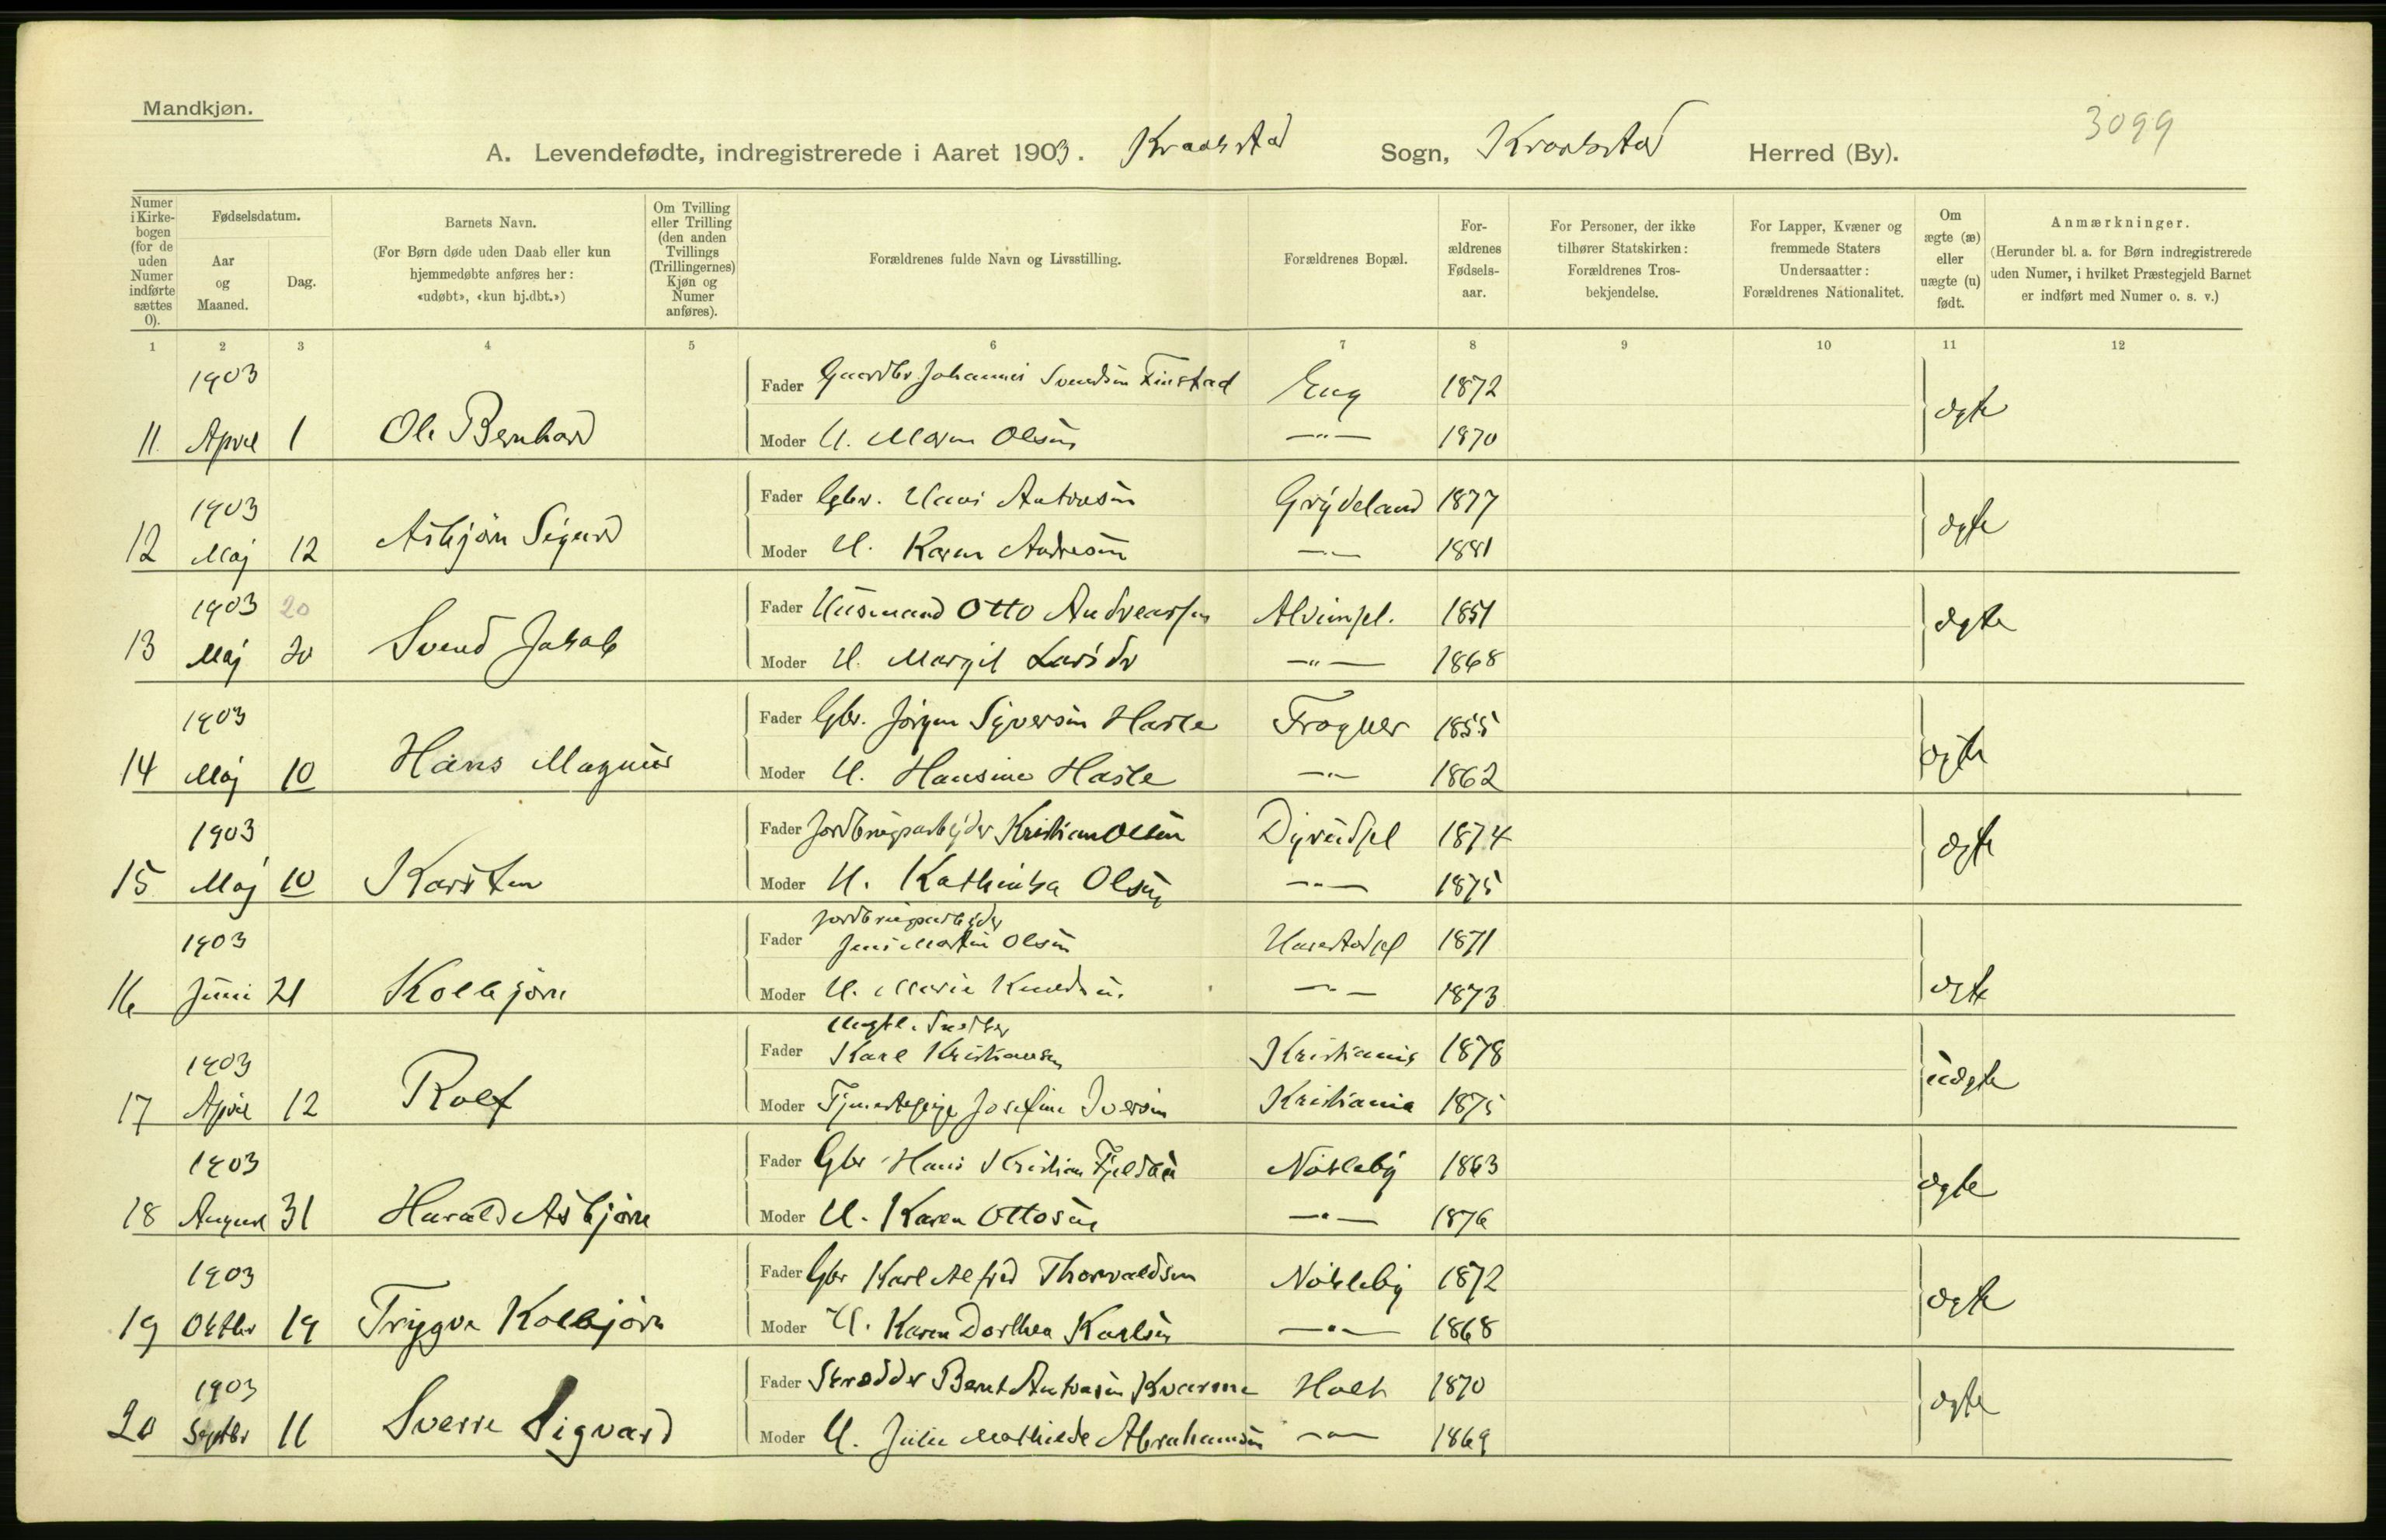 Mandkjøn.
3099
A. Levendefødte, indregistrerede i Aaret 1903. Kraakstad Sogn, Kraakstad Herred (By).
Numer i Kirkebogen (for de uden Numer indførte sættes 0).
Fødselsdatum.
Aar og Maaned.
Dag.
Barnets Navn.
(For Børn døde uden Daab eller kun hjemmedøbte anføres her: «udøbt», «kun hj.dbt.»)
Om Tvilling eller Trilling (den anden Tvillings (Trillingernes) Kjøn og Numer anføres).
Forældrenes fulde Navn og Livsstilling.
Forældrenes Bopæl.
Forældrenes Fødselsaar.
For Personer, der ikke tilhører Statskirken: Forældrenes Trosbekjendelse.
For Lapper, Kvæner og fremmede Staters Undersaatter: Forældrenes Nationalitet.
Om ægte (æ) eller uægte (u) født.
Anmærkninger.
(Herunder bl. a. for Børn indregistrerede uden Numer, i hvilket Præstegjeld Barnet er indført med Numer o. s. v.)
1 2 3 4 5 6 7 8 9 10 11 12
1903 Fader Gaardbr Johannes Svendsen Finstad Eng 1872
11 April 1 Ole Bernhard Moder H. Maren Olsen —"— 1870 ægte
1903 Fader Gbr. Hans Antonsen Grydeland 1877
12 Maj 12 Asbjørn Sigurd Moder H. Karen Andresen —"— 1881 ægte
1903 20 Fader Husmand Otto Andreassen 1851
13 Maj 20 Svend Jakob Moder H. Margit Larsdr —"— 1868 ægte
1903 Fader Gbr. Jørgen Syversen Hasle Frogner 1855
14 Maj 10 Hans Magnus Moder H. Hansine Hasle —"— 1862 ægte
1903 Fader Jordbrugsarbejder Kristian Olsen 1874
15 Maj 10 Karsten Moder H. Kathinka Olsen —"— 1875 ægte
Jordbrugsarbejder
1903 Fader Jens Martin Olsen 1871
16 Juni 21 Kolbjørn Moder H. Marie Knudsen —"— 1873 ægte
Ungk. Snedker
1903 Fader Karl Kristiansen Kristiania 1878
17 April 12 Rolf Moder Tjenestepige Josefine Iversen Kristiania 1875 uægte
1903 Fader Gbr Hans Kristian Nøkleby 1863
18 August 31 Harald Asbjørn Moder H. Karen Ottosen —"— 1876 ægte
1903 Fader Gbr Karl Alfred Thorvaldsen Nøkleby 1872
19 Oktbr 19 Trygve Kolbjørn Moder H. Karen Dorthea Karlsen —"— 1868 ægte
1903 Fader Skrædder Bernt Antonsen Kvarme Holt 1870
20 Septbr 11 Sverre Sigvard Moder H. Julie Mathilde Abrahamsen —"— 1869 ægte